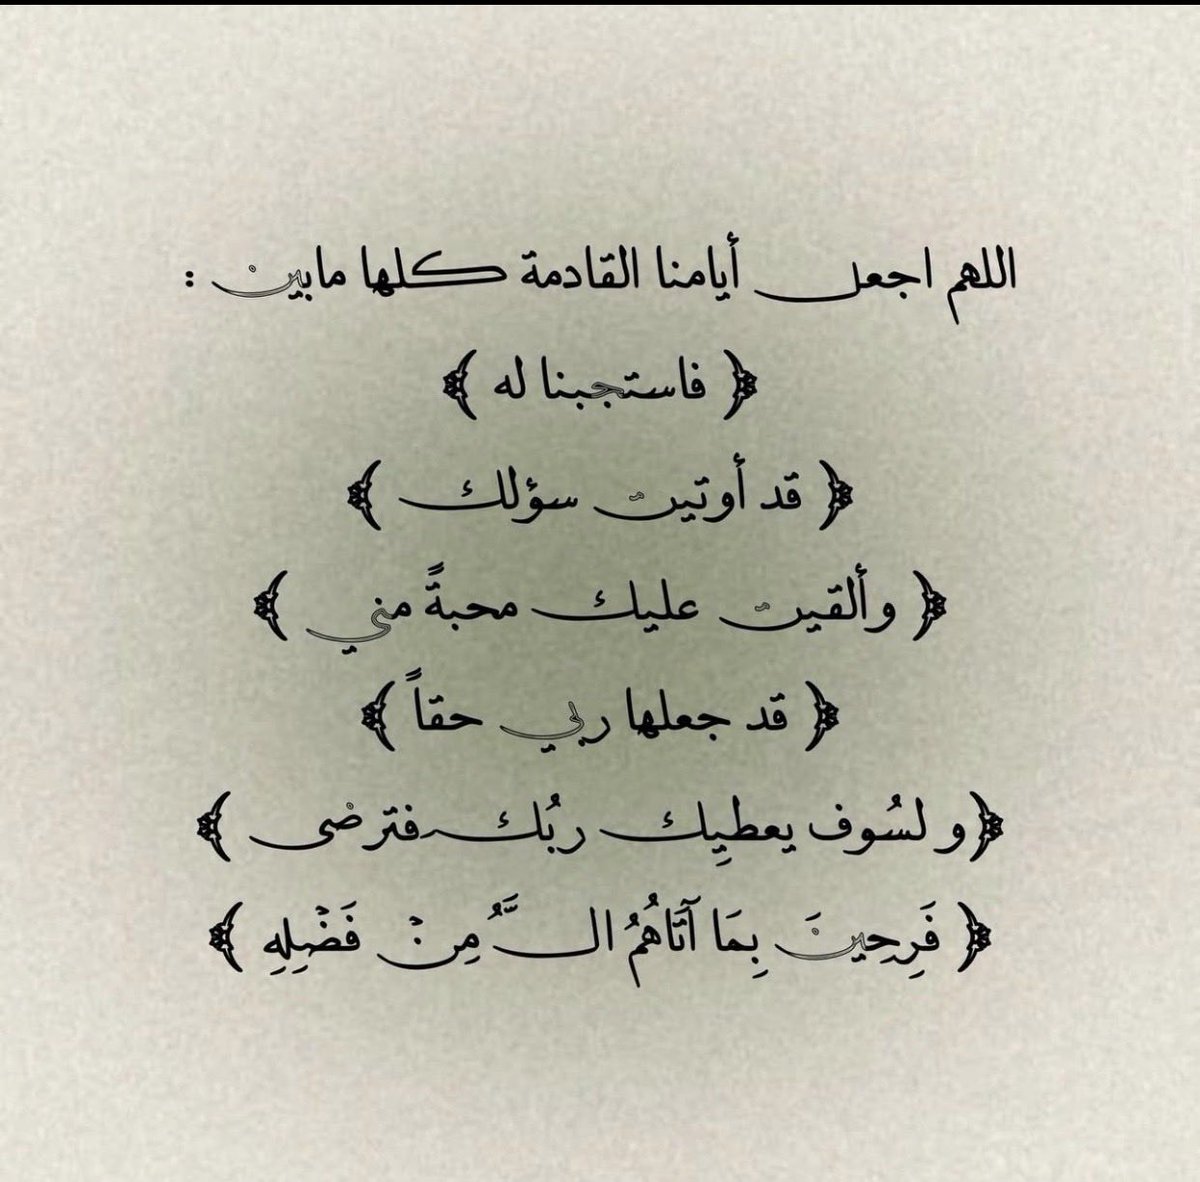 اللهم اجعل أيامنا القادمة كلها مابين :
﴿ فاستجبنا له ﴾
﴿ قد أوتيت سؤلك ﴾
﴿ وألقيت عليك محبةً مني ﴾
﴿ قد جعلها ربي حقاً ﴾
﴿ ولسُوف يعطيِك ربُك فترضى ﴾
﴿ فَرِحِينَ بِمَا آتَاهُمُ الـَّـُ مِنْ فَضْلِهِ ﴾